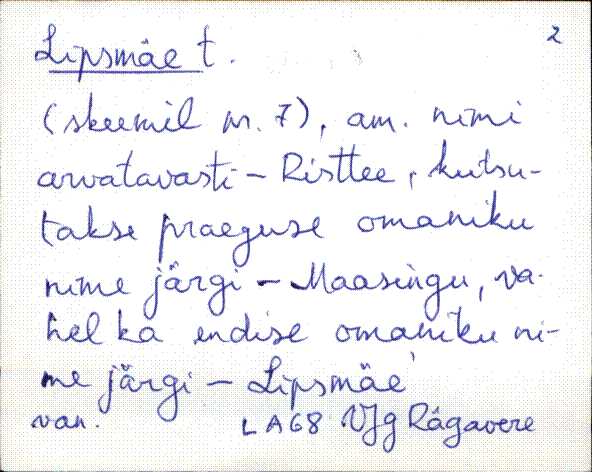 2
Lipsmäe t.
(skeemil nr. 7), am. nimi
arvatavasti - Risttee, kutsu-
takse praeguse omaniku
nime järgi - Maasingu, va-
hel ka endise omaniku ni-
me järgi - Lipsmäe
van. LA68 VJg Rägavere